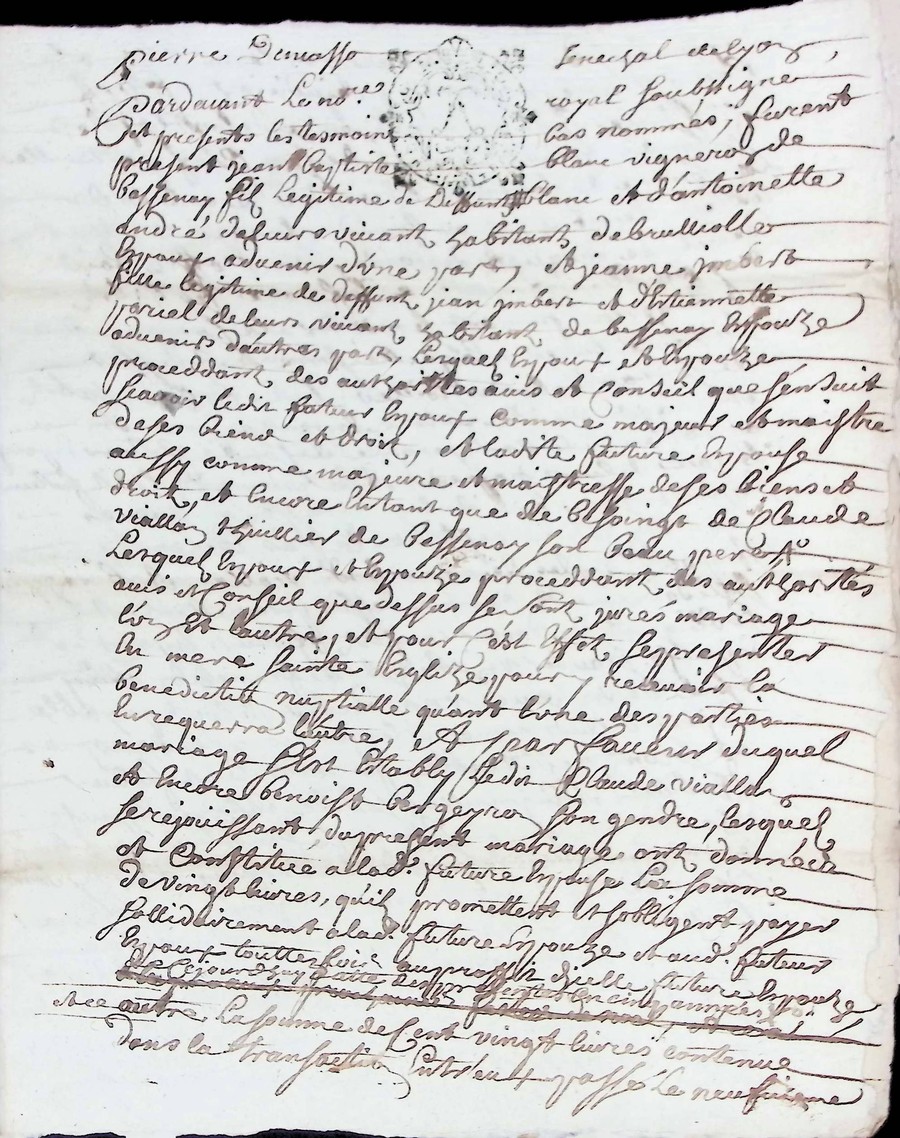 pierre Demasso senechal de lyon,
Pardavant Le no.re royal soubssigné
et presents les tesmoins bas nommés, furent
present jean baptiste blanc vigneron de
bessenay fils Legitime de Deffunt blanc et d'antoinette
andré de leurs vivant habitant de brullioles
Espoux advenir d'une part, et jeanne imbert
fille legitime de deffunt jean imbert et d'Estiennette
pariel de leurs vivant habitant de bessenay Espouze
advenir d'autres part, Lesquel Espoux et Espouze
proceddant des authorittes avis et Conseil que s'ensuit
scavoir ledit futeur Espoux comme majeur et maistre
de ses biens et droit, et ladite future Espouse
aussy comme majeure et maistresse de ses biens et
droit, et encore entant que de besoingt de Claude
viallon thuillier de bessenay son beau pere
Lesquel Espoux et Espouze proceddant des authorités
avis et Conseil que dessus se sont jurés mariage
l'un et l'autre, et pour c'est Effet se presenter
En mere sainte Esglize pour y recevoir la
benediction nuptialle quant l'une des parties
En requerra l'autre, et par faveur duquel
mariage s'est Estably Ledit Claude viallon
et Encore benoist bergeyron son gendre, lesquel
se rejouissant du present mariage ont donnée
et Constitué a lad. future Espouse La somme
de vingt livres, qu'il promettent et s'obligent payer
sollidairement a lad. future Espouze et aud. futeur
Espoux touttefois au proffit d'jcelle future Espouze
de ce jourdhuy En cinq années
et ce outre La somme de Cent vingt livres contenue
dans la transaction Entr'eux passé le neufvieme